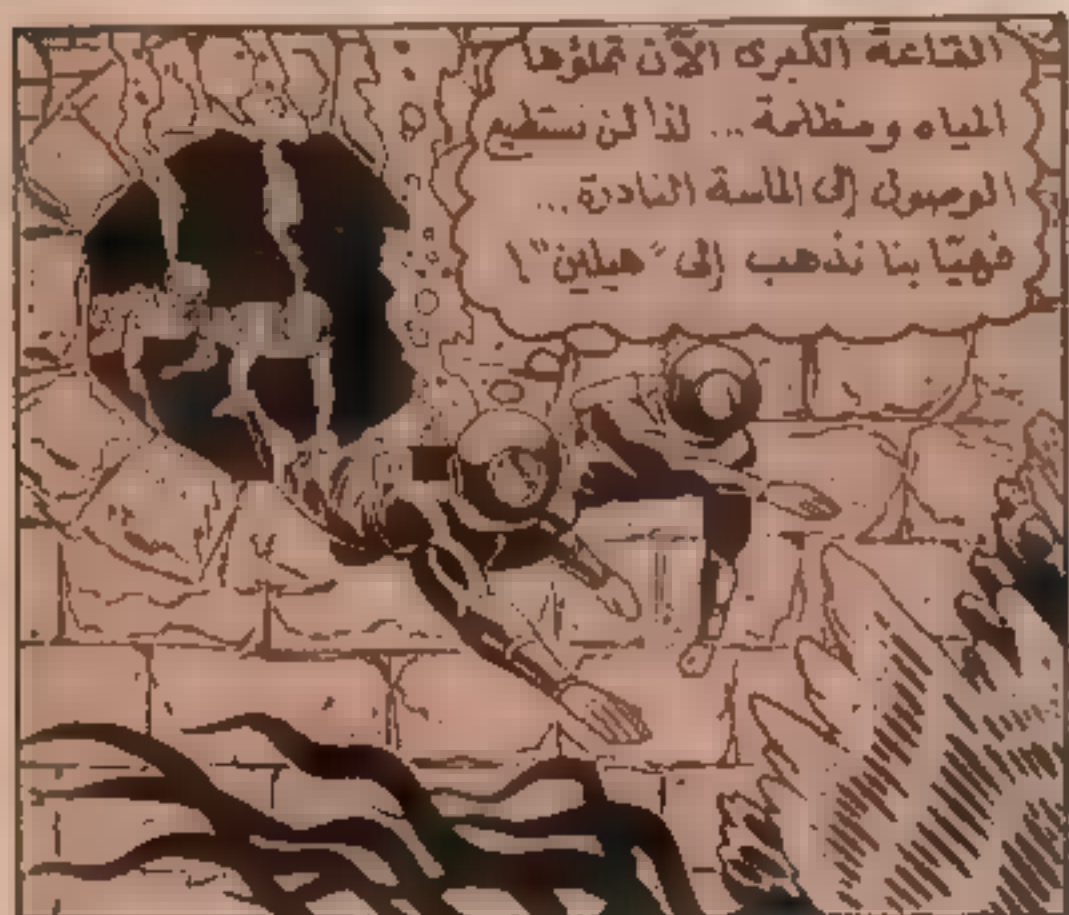 القاعة الكبرى الآن تملؤها
المياه ومظلمة ... لذا لن نستطيع
الوصول إلى الماسة النادرة ...
فهيّا بنا نذهب إلى "هيلين" !